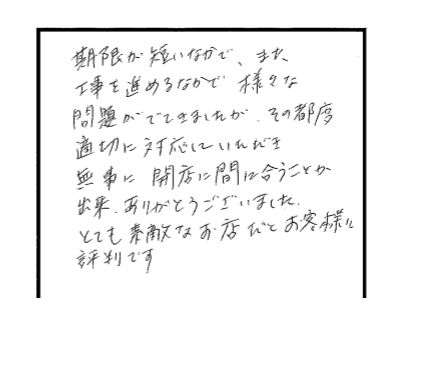 期限が短いなかで、また
工事を進めるなかで様々な
問題がでてきましたが、その都度
適切に対応していただき
無事に開店に間に合うことが
出来、ありがとうございました。
とても素敵なお店だとお客様に
評判です